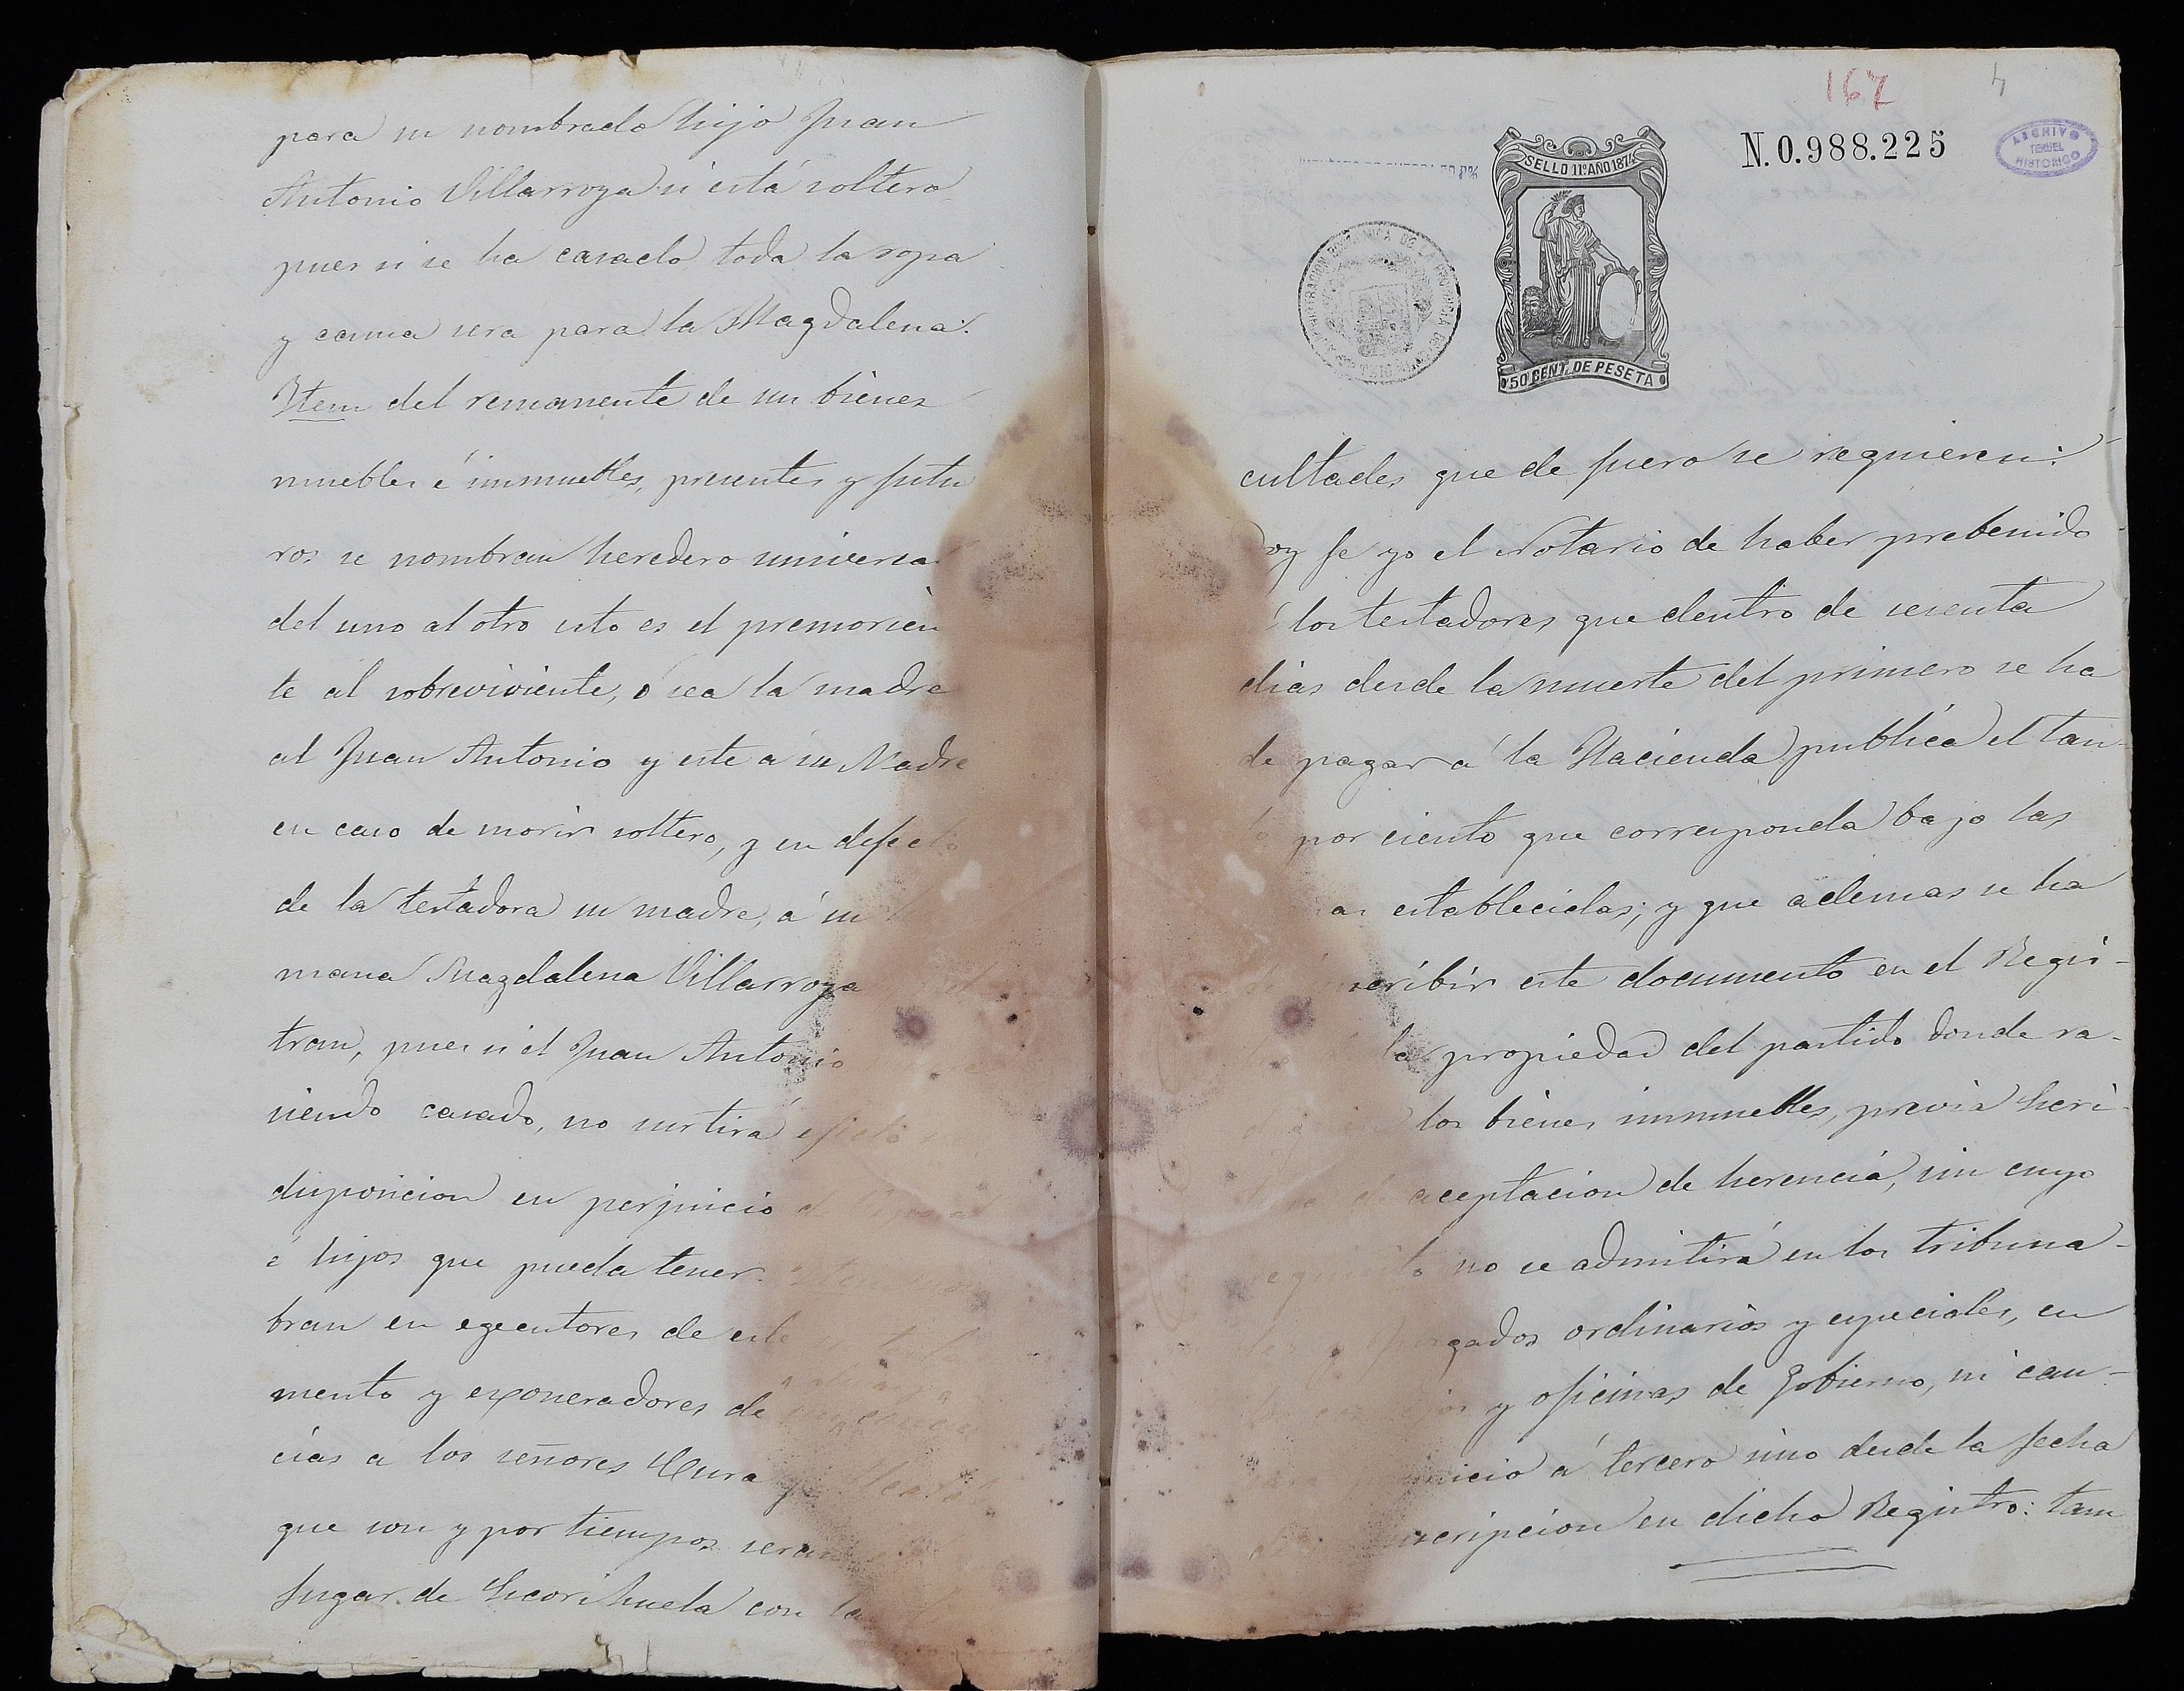 para su nombrado hijo Juan
Antonio Villarroya si está soltero
pues si se ha casado toda la ropa
y cama sera para la Magdalena.
Item del remanente de sus bienes
muebles é inmuebles, presentes y futu
ros se nombran heredero universal
del uno al otro esto es el premorien
te al sobreviviente, ó sea la madre
al Juan Antonio y este á su Madre
en caso de morir soltero, y en defecto
de la testadora su madre, á su
mana Magdalena Villarroya
tran, pues si el Juan Antonio
siendo casado, no surtirá efecto
disposicion en perjuicio de
é hijos que pueda tener.
bran en egecutores de este
mento y exoneradores de
cias a los señores Cura y
que son y por tiempos seran
lugar de Escorihuela con la
167
4
N. 0.988.225
ARCHIVO
TERUEL
HISTORICO
SELLO 11º AÑO 1874
50 CENT. DE PESETA
cultades que de fuero se requieren.
Doy fe yo el Notario de haber prebenido
á los testadores que dentro de sesenta
dias desde la muerte del primero se ha
de pagar á la Hacienda publica el tan-
to por ciento que corresponda bajo las
establecidas; y que ademas se ha
inscribir este documento en el Regis-
la propiedad del partido donde ra-
los bienes inmuebles, previa Escri-
aceptacion de herencia, sin cuyo
requisito no se admitirá en los tribuna-
juzgados ordinarios y especiales, en
y oficinas de Gobierno, ni cau-
perjuicio á tercero sino desde la fecha
inscripcion en dicho Registro: tam